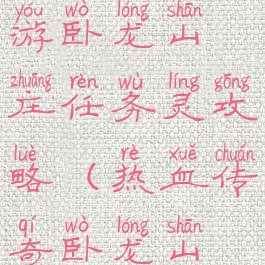 yóu wò lóng shān
游卧龙山
zhuāng rèn wù líng gōng
庄任务灵攻
luè rè xuě chuán
略（热血传
qí wò lóng shān
奇卧龙山